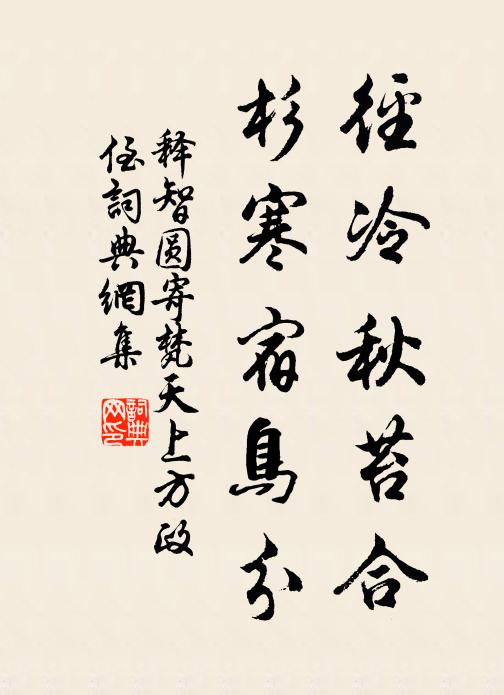 徑冷秋苔合
杉寒宿鳥分
释智圆寄梵天上方政
侄詞典網集
詞典網印